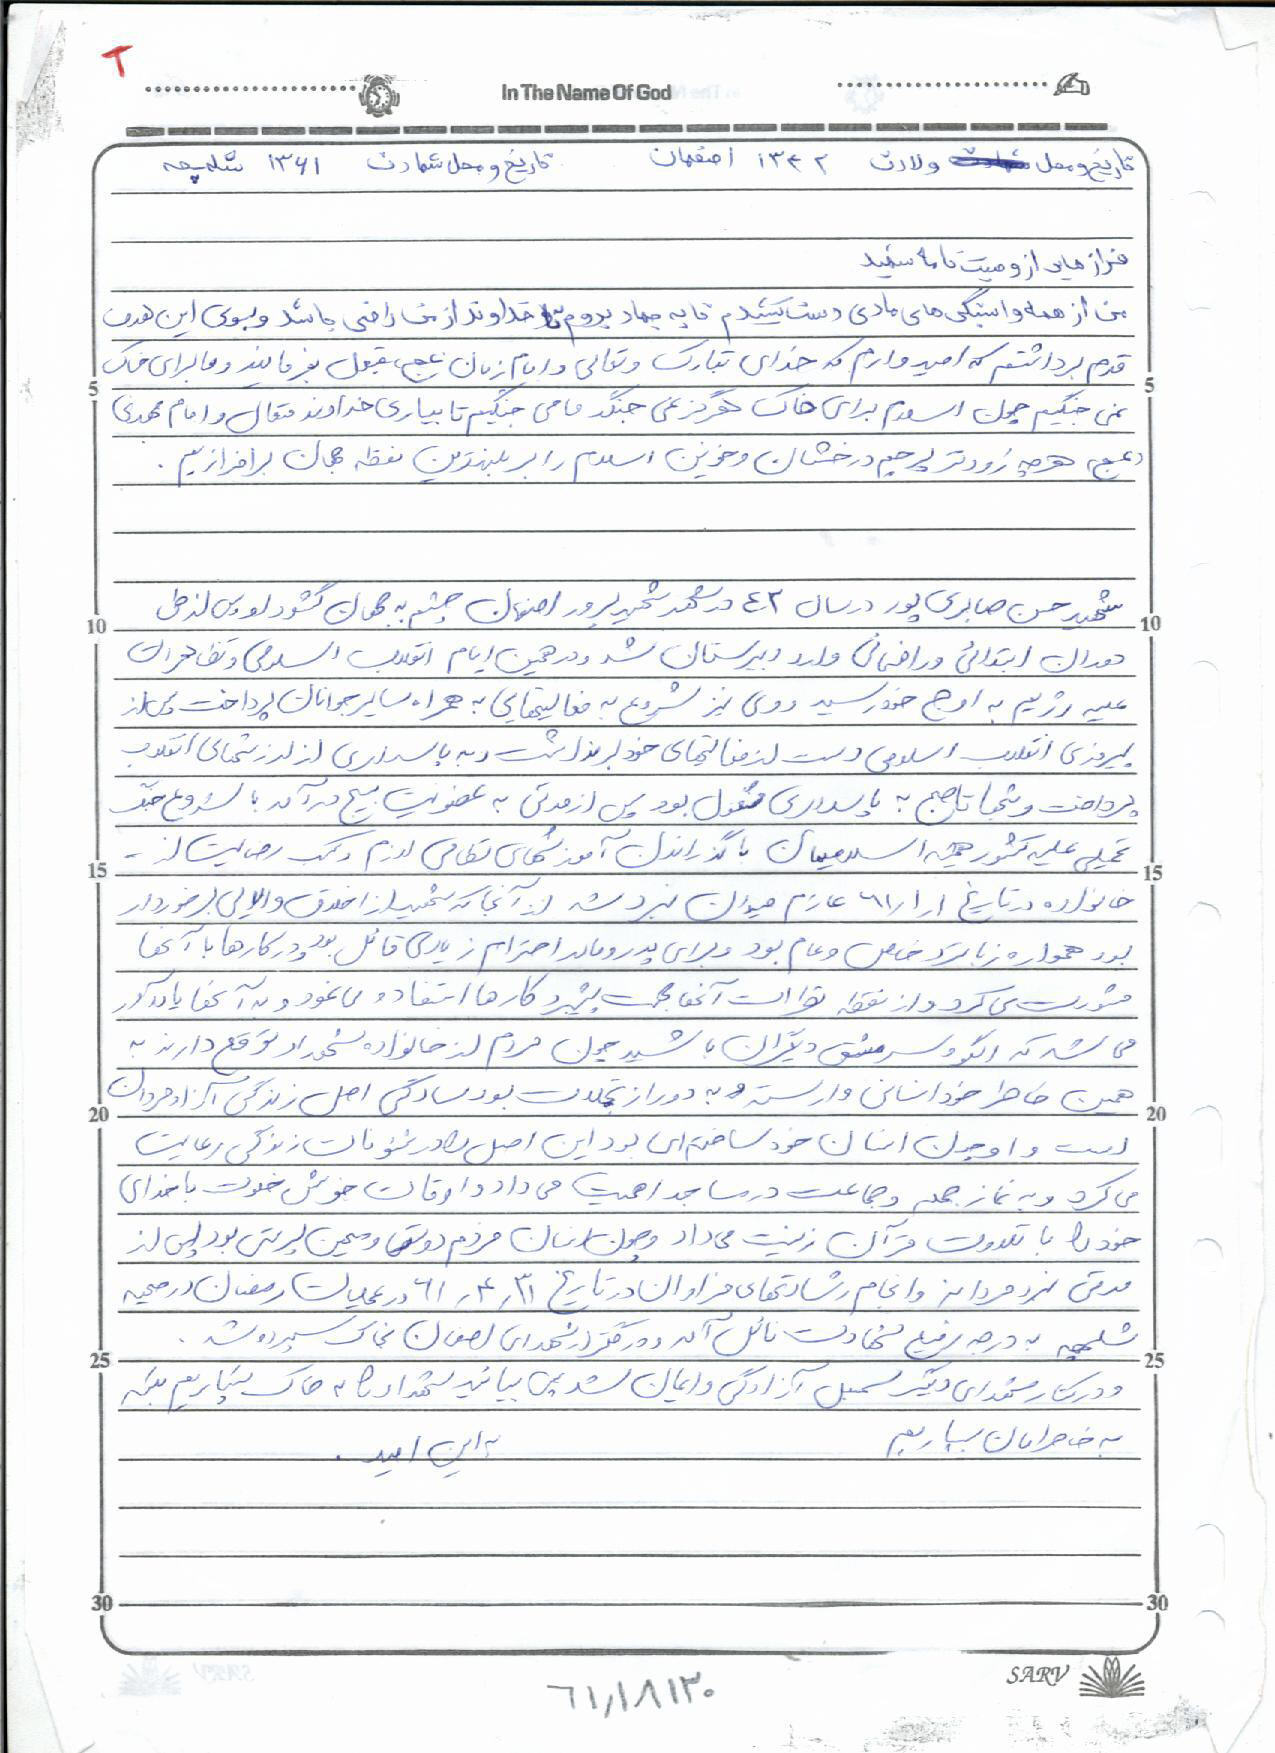 In The Name Of God
تاریخ و محل ولادت ۱۳۴۲ اصفهان تاریخ و محل شهادت ۱۳۶۱ شلمچه
فرازهایی از وصیت نامه شهید
من از همه وابستگی های مادی دست کشیدم تا به جهاد بروم تا خداوند از من راضی باشد و بسوی این هدف
قدم برداشتم که امیدوارم که خدای تبارک و تعالی و امام زمان (عج) قبول بفرمایند و ما برای خاک
5 5
نمی جنگیم چون اسلام برای خاک هرگز نمی جنگد ما می جنگیم تا بیاری خداوند متعال و امام مهدی
(عج) هر چه زودتر پرچم درخشان و خونین اسلام را بر بلندترین نقطه جهان برافرازیم.
شهید حسن صابری پور در سال ۴۲ در شهر شهید پرور اصفهان چشم به جهان گشود او پس از طی
10 10
دوران ابتدائی و راهنمائی وارد دبیرستان شد و در همین ایام انقلاب اسلامی و تظاهرات
علیه رژیم به اوج خود رسید و وی نیز شروع به فعالیتهایی به همراه سایر جوانان پرداخت پس از
پیروزی انقلاب اسلامی دست از فعالیتهای خود برنداشت و به پاسداری از ارزشهای انقلاب
پرداخت و شبها تا صبح به پاسداری مشغول بود پس از مدتی به عضویت بسیج درآمد با شروع جنگ
تحمیلی علیه کشور اسلامیمان با گذراندن آموزشهای نظامی لازم و کسب رضایت از -
15 15
خانواده در تاریخ ۶۱/۱/۱ عازم میدان نبرد شد از آنجا که شهید از اخلاق والایی برخوردار
بود همواره زبانزد خاص و عام بود و برای پدر و مادر احترام زیادی قائل بود و در کارها با آنها
مشورت می کرد و از نقطه نظرات آنها جهت پیشبرد کارها استفاده می نمود و به آنها یادآور
می شد که الگو و سرمشق دیگران باشید چون مردم از خانواده شهدا توقع دارند به
همین خاطر خود انسانی وارسته و به دور از تجملات بود سادگی اصل زندگی آزاد مردان
20 20
است و او چون انسان خود ساخته ای بود این اصل را در شئونات زندگی رعایت
می کرد و به نماز جمعه و جماعت در مساجد اهمیت می داد و اوقات خویش خلوت با خدای
خود را با تلاوت قرآن زینت می داد و چون انسان مردم دوست و میهن پرستی بود پس از
مدتی نبرد مردانه و انجام رشادتهای فراوان در تاریخ ۶۱/۴/۳۱ در عملیات رمضان در
شلمچه به درجه رفیع شهادت نائل آمد و در گلزار شهدای اصفهان بخاک سپرده شد.
25 25
و در کنار شهدای دیگر سمبل آزادگی و ایمان شد پس بیائید شهدا را به خاک نسپاریم بلکه
به خاطرمان بسپاریم به این امید.
30 30
SARV
۶۱/۱۸۱۳۰